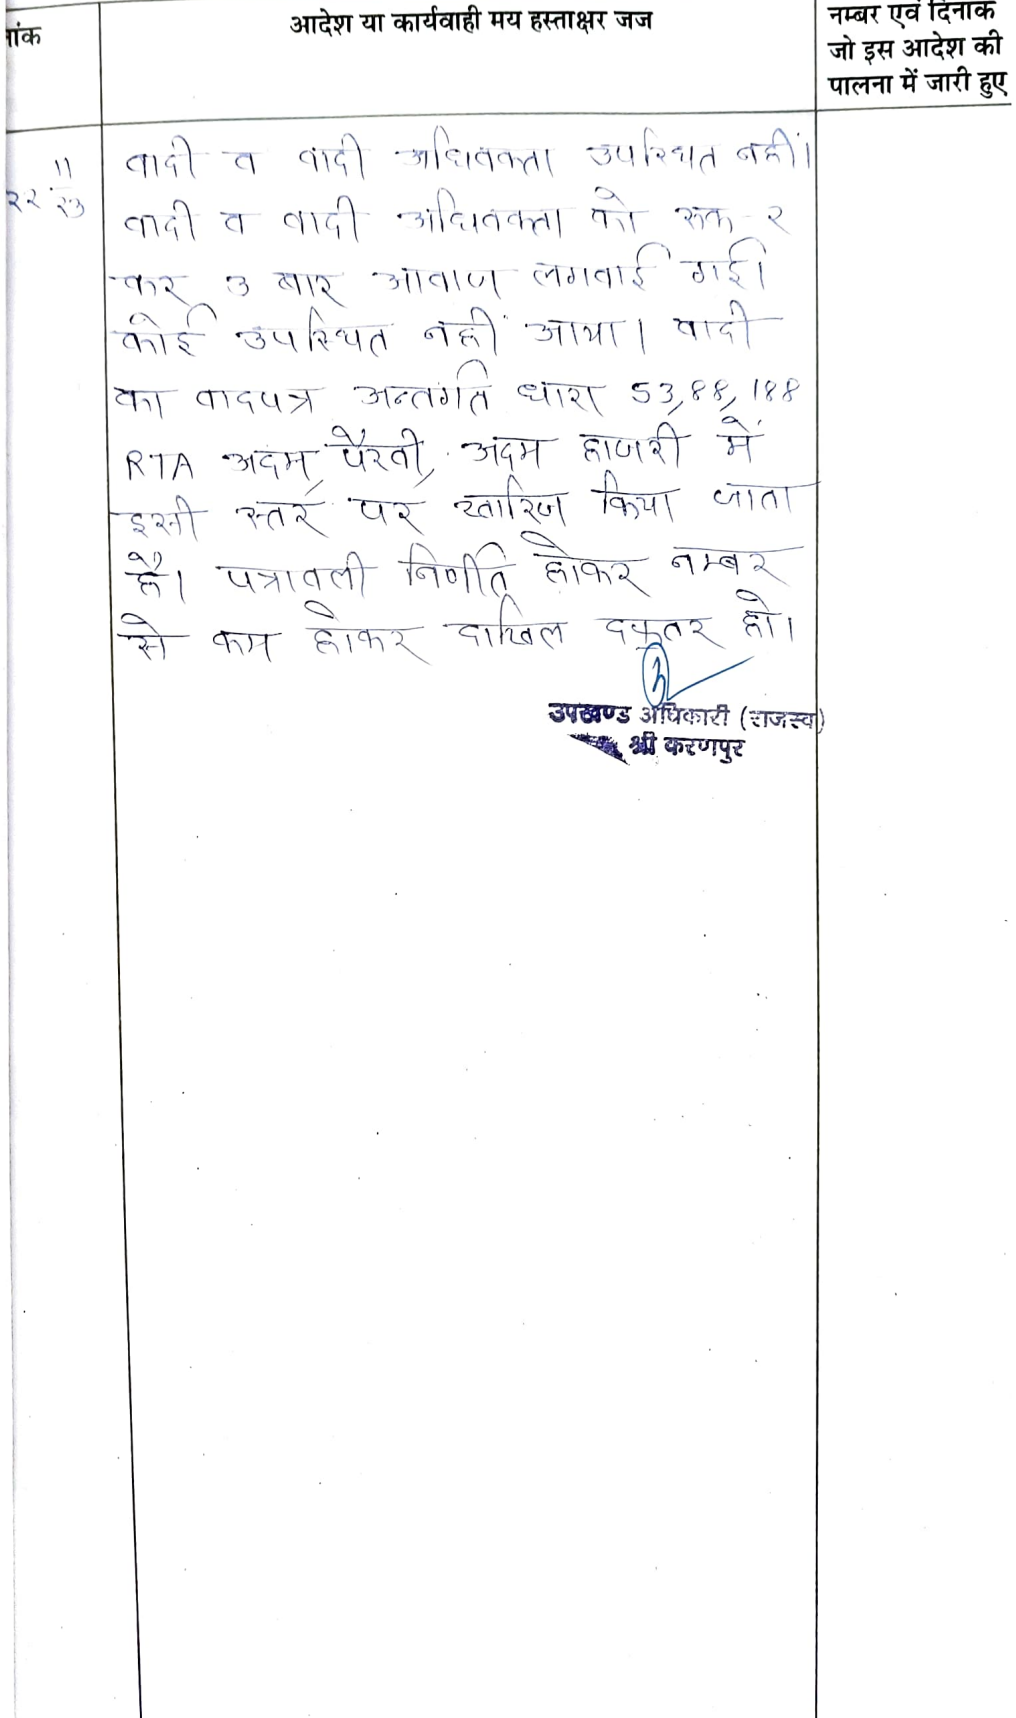 आदेश या कार्यवाही मय हस्ताक्षर जज
नम्बर एवं दिनाक
जो इस आदेश की
पालना में जारी हुए
ांक
22 11/23
वादी व वादी अधिवक्ता उपस्थित नहीं।
वादी व वादी अधिवक्ता को रुक-२
कर 3 बार आवाज लगवाई गई।
कोई उपस्थित नहीं आया। वादी
का वादपत्र अन्तर्गत धारा 53,88,188
RTA अदम पैरवी, अदम हाजरी में
इसी स्तर पर खारिज किया जाता
है। पत्रावली निर्णीत होकर नम्बर
से कम होकर दाखिल दफ्तर हो।
उपखण्ड अधिकारी (राजस्व)
श्री करणपुर